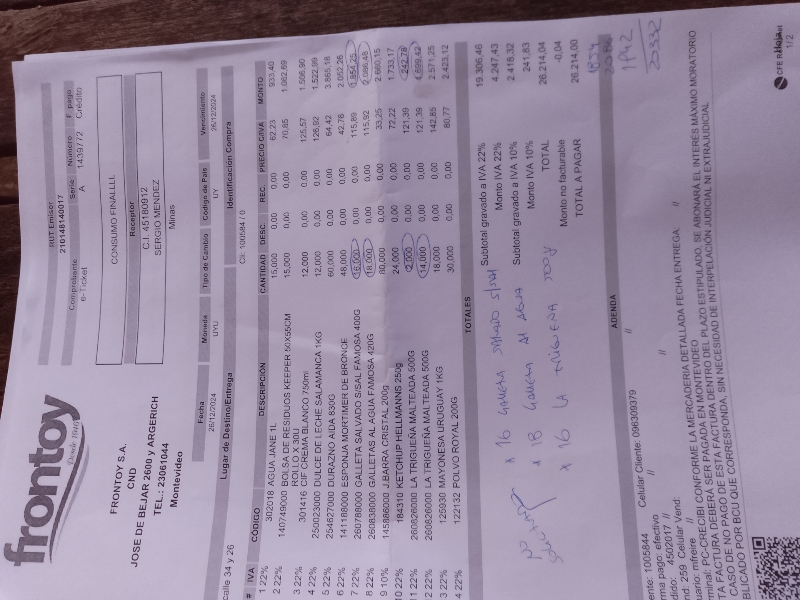 frontoy
Desde 1940
FRONTOY S.A.
CND
JOSE DE BEJAR 2600 y ARGERICH
TEL.: 23061044
Montevideo
RUT Emisor
210148140017
Comprobante Serie Número F. pago
e-Ticket A 1439772 Crédito
CONSUMO FINALLLL
Receptor
C.I. 45180912
SERGIO MENDEZ
Minas
Fecha Moneda Tipo de Cambio Código de País Vencimiento
26/12/2024 UYU UY 26/12/2024
Lugar de Destino/Entrega Identificación Compra
calle 34 y 26 Cli: 100584 / 0
# IVA CÓDIGO DESCRIPCION CANTIDAD DESC. REC. PRECIO C/IVA MONTO
1 22% 302018 AGUA JANE 1L 15,000 0,00 0,00 62,23 933,40
2 22% 140749000 BOLSA DE RESIDUOS KEEPER 50X55CM 15,000 0,00 0,00 70,85 1.062,69
ROLLO X 30U
3 22% 301416 CIF CREMA BLANCO 750ml 12,000 0,00 0,00 125,57 1.506,90
4 22% 250023000 DULCE DE LECHE SALAMANCA 1KG 12,000 0,00 0,00 126,92 1.522,99
5 22% 254627000 DURAZNO AIDA 830G 60,000 0,00 0,00 64,42 3.865,18
6 22% 141188000 ESPONJA MORTIMER DE BRONCE 48,000 0,00 0,00 42,76
7 22% 260788000 GALLETA SALVADO S/SAL FAMOSA 400G 16,000 0,00 0,00 115,89 1.854,25
8 22% 260838000 GALLETAS AL AGUA FAMOSA 420G 18,000 0,00 0,00 115,92 2.086,48
9 10% 145886000 J.BARRA CRISTAL 200g 80,000 0,00 0,00 33,25 2.660,15
10 22% 184310 KETCHUP HELLMANNS 250g 24,000 0,00 0,00 72,22 1.733,17
11 22% 260826000 LA TRIGUEÑA MALTEADA 500G 2,000 0,00 0,00 121,39 242,78
2 22% 260826000 LA TRIGUEÑA MALTEADA 500G 14,000 0,00 0,00 121,39 1.699,42
3 22% 125930 MAYONESA URUGUAY 1KG 18,000 0,00 0,00 142,85 2.571,25
4 22% 122132 POLVO ROYAL 200G 30,000 0,00 0,00 80,77 2.423,12
TOTALES
Subtotal gravado a IVA 22% 19.306,46
Monto IVA 22% 4.247,43
Subtotal gravado a IVA 10% 2.418,32
Monto IVA 10% 241,83
TOTAL 26.214,04
Monto no facturable -0,04
TOTAL A PAGAR 26.214,00
x 16
x 18 AL AGUA
x 16 LA TRIGUEÑA 500g
1942
20332
ADENDA
ente: 1005844 Celular Cliente: 096309379
rma pago: efectivo //
dido: 4502017 // //
nd: 259 Celular Vend: //
uario: mfreire //
minal: PC-CRECIBI CONFORME LA MERCADERIA DETALLADA FECHA ENTREGA: //
TA FACTURA DEBERÁ SER PAGADA EN MONTEVIDEO
TA FACTURA DENTRO DEL PLAZO ESTIPULADO, SE ABONARÁ EL INTERÉS MÁXIMO MORATORIO
CASO DE NO PAGO DE
BLICADO POR BCU QUE CORRESPONDA, SIN NECESIDAD DE INTERPELACIÓN JUDICIAL NI EXTRAJUDICIAL
CFE
Hoja
1/2